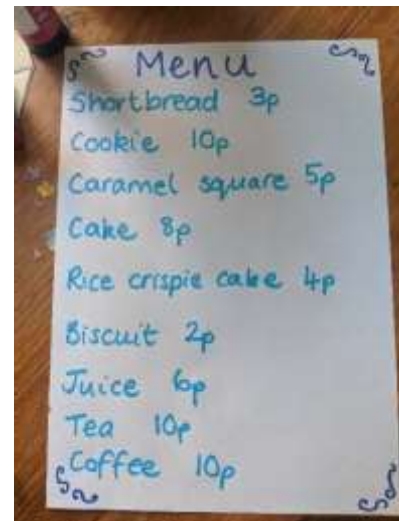 Menu
Shortbread 3p
Cookie 10p
Caramel square 5p
Cake 8p
Rice crispie cake 4p
Biscuit 2p
Juice 6p
Tea 10p
Coffee 10p